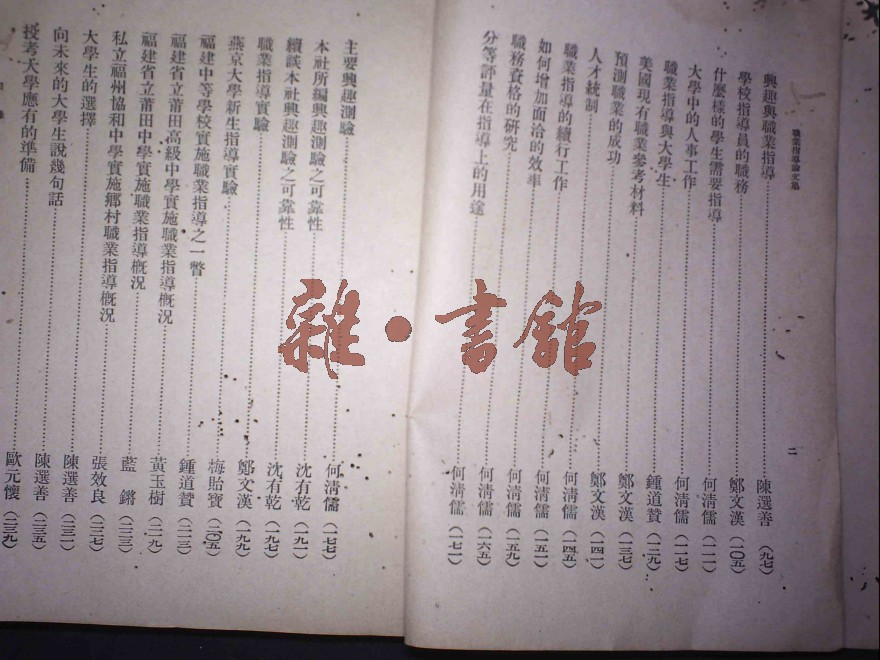 職業指導論文集
二
興趣與職業指導……陳選善（九七）
學校指導員的職務……鄭文漢（一〇五）
什麼樣的學生需要指導……何清儒（一一一）
大學中的人事工作……何清儒（一一七）
職業指導與大學生……鍾道贊（一二九）
美國現有職業參考材料……鄭文漢（一三七）
預測職業的成功……鄭文漢（一四一）
人才統制……何清儒（一四五）
職業指導的續行工作……何清儒（一五一）
如何增加面洽的效率……何清儒（一五九）
職務資格的研究……何清儒（一六五）
分等評量在指導上的用途……何清儒（一七一）
主要興趣測驗……何清儒（一七七）
本社所編興趣測驗之可靠性……沈有乾（一九一）
續談本社興趣測驗之可靠性……沈有乾（一九七）
職業指導實驗……鄭文漢（一九九）
燕京大學新生指導實驗……梅貽寶（二〇五）
福建中等學校實施職業指導之一瞥……鍾道贊（二一三）
福建省立莆田高級中學實施職業指導概況……黃玉樹（二一九）
福建省立莆田中學實施職業指導概況……藍鏘（二二三）
私立福州協和中學實施鄉村職業指導概況……張效良（二二七）
大學生的選擇……陳選善（二三一）
向未來的大學生說幾句話……陳選善（二三五）
投考大學應有的準備……歐元懷（二三九）
雜·書館